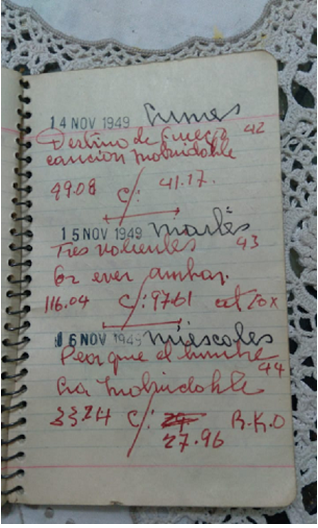 14 NOV 1949 Lunes
Destino de fuego 42
cancion inolvidable
49.08 c/: 41.17.
15 NOV 1949 martes
Tres valientes 43
for ever ambar.
116.04 c/: 97.61
16 NOV 1949 miescoles
Peor que el hombre
44
Era inolvidable
33.24 c/: R.K.O
27.96